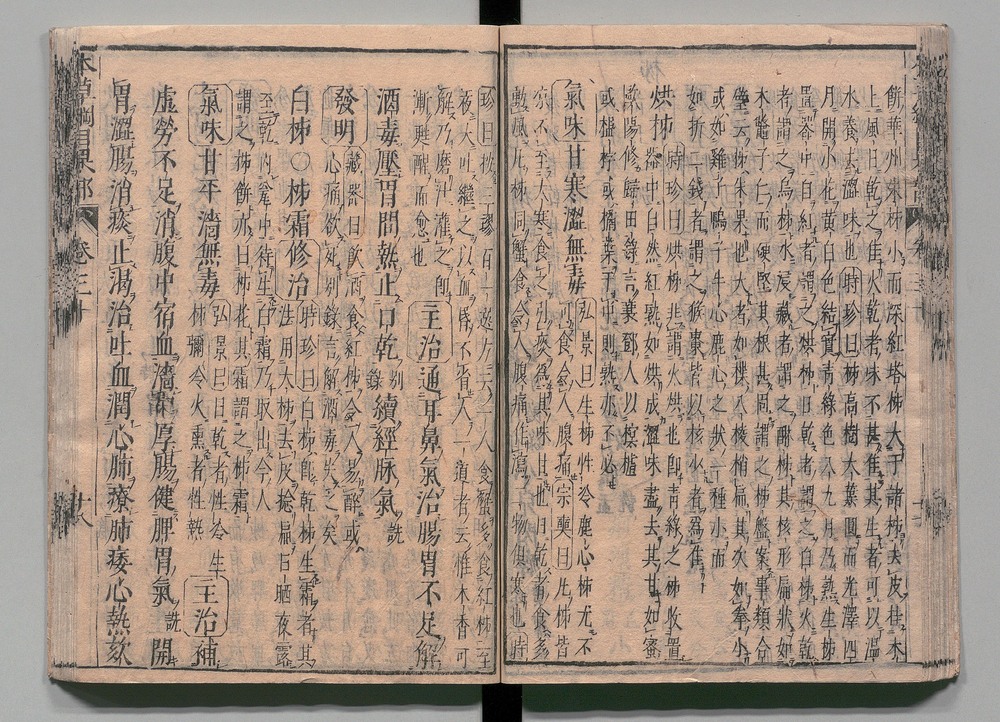 餅華州朱柿小而深紅塔柿大于諸柿去皮挂木
上風日乾之佳火乾者味不甚佳其生者可以溫
水養去澀味也時珍曰柿高樹大葉圓而光澤四
月開小花黃白色結實青綠色八九月乃熟生柿
置器中自紅者謂之烘柿日乾者謂之白柿火乾
者謂之烏柿水浸藏者謂之醂柿其核形扁狀如
木鱉子仁而硬堅其根甚固謂之柿盤案事類合
璧云柿朱果也大者如楪八稜稍扁其次如拳小
或如雞子鴨子牛心鹿心之狀一種小而
如折二錢者謂之猴棗皆以核少者為佳
烘柿
時珍曰烘柿非謂火烘也即青綠之柿收置
器中自然紅熟如烘成澀味盡去其甘如蜜
歐陽修歸田錄言襄鄧人以榠樝
或榲桲或橘葉于中則熟亦不必
氣味甘寒澀無毒
弘景曰生柿性冷鹿心柿尤不
可食令人腹痛宗奭曰凡柿皆
涼不至大寒食之引痰為其味甘也日乾者食多
動風凡柿同蟹食令人腹痛作瀉二物俱寒也時
珍曰按王璆百一選方云一人食蟹多食紅柿至
夜大吐繼之以血昏不省人一道者云惟木香可
解乃磨汁灌之即
漸甦醒而愈也
主治通耳鼻氣治腸胃不足解
酒毒壓胃間熱止口乾
別錄
續經脉氣
詵
發明
藏器曰飲酒食紅柿令人易醉或
心痛欲死別錄言解酒毒失之矣
白柿○柿霜修治
時珍曰白柿即乾柿生霜者其
法用大柿去皮捻扁日晒夜露
至乾內甕中待生白霜乃取出今人
謂之柿餅亦曰柿花其霜謂之柿霜
氣味甘平澀無毒
弘景曰日乾者性冷生
柿彌冷火熏者性熱
主治補
虛勞不足消腹中宿血澀中厚腸健脾胃氣
詵
開
胃澀腸消痰止渴治吐血潤心肺療肺痿心熱欬
本草綱目果部
卷三十
廿八